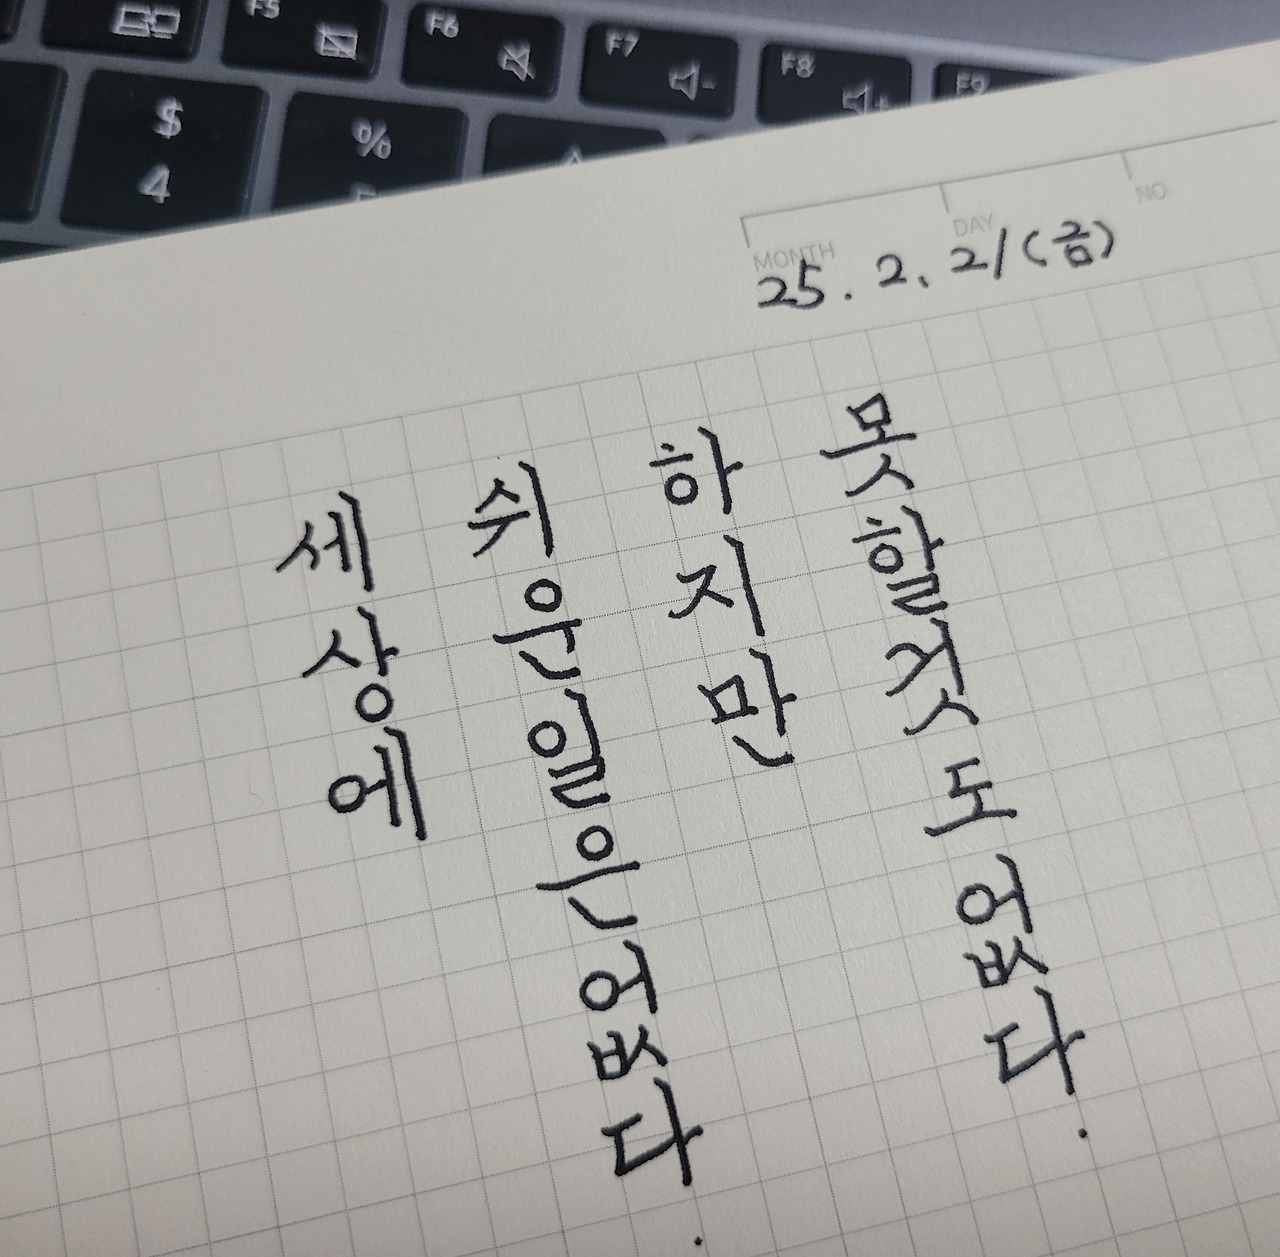 F5 F6 F7 F8 F9
$ %
4
MONTH DAY NO
25. 2. 21(금)
세상에
쉬운일은없다.
하지만
못할짓도없다.